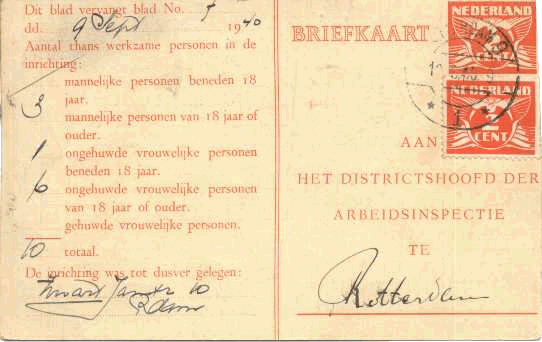 Dit blad vervangt blad No. 5
dd. 9 Sept 1940
Aantal thans werkzame personen in de
inrichting:
mannelijke personen beneden 18
jaar.
3 mannelijke personen van 18 jaar of
ouder.
1 ongehuwde vrouwelijke personen
beneden 18 jaar.
6 ongehuwde vrouwelijke personen
van 18 jaar of ouder.
gehuwde vrouwelijke personen.
10 totaal.
De inrichting was tot dusver gelegen:
10
Rdam
BRIEFKAART
NEDERLAND
CENT
NEDERLAND
2 CENT
1
AAN
HET DISTRICTSHOOFD DER
ARBEIDSINSPECTIE
TE
Rotterdam